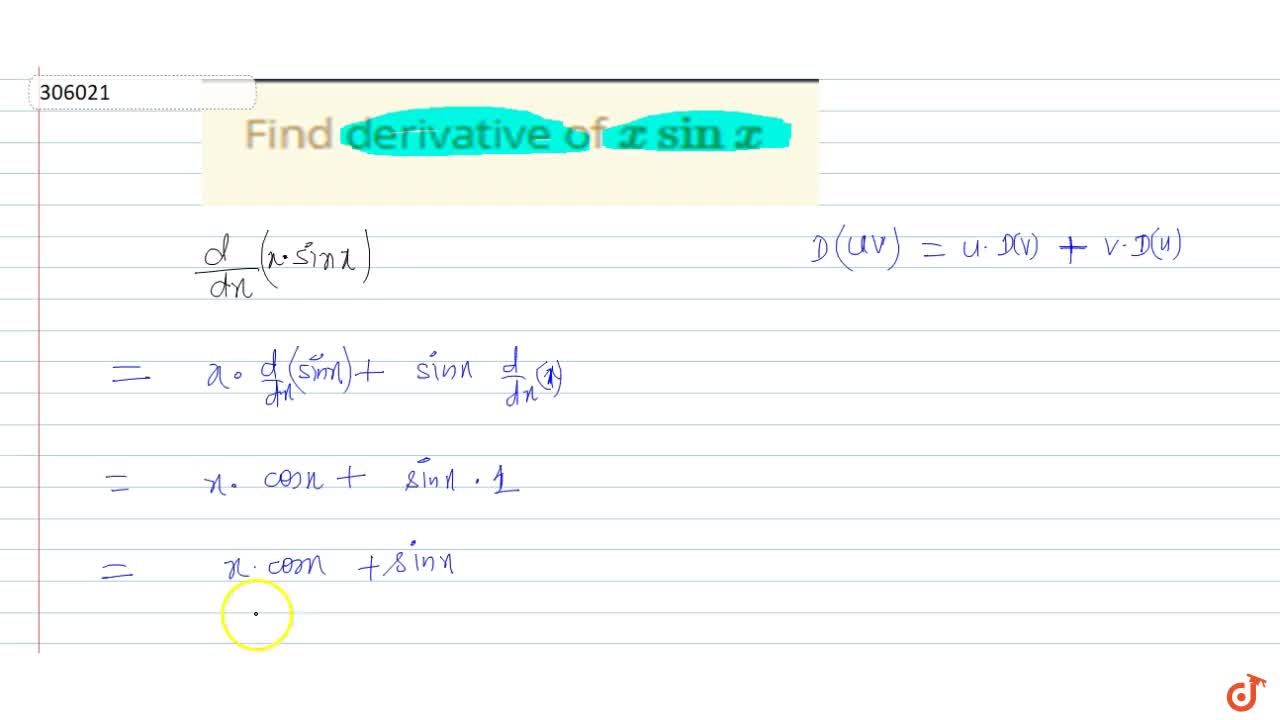 306021
Find derivative of x sin x
d/dx (x·sinx)
D(UV) = U·D(V) + V·D(U)
= x· d/dx (sinx) + sinx d/dx (x)
= x· cosx + sinx · 1
= x· cosx + sinx